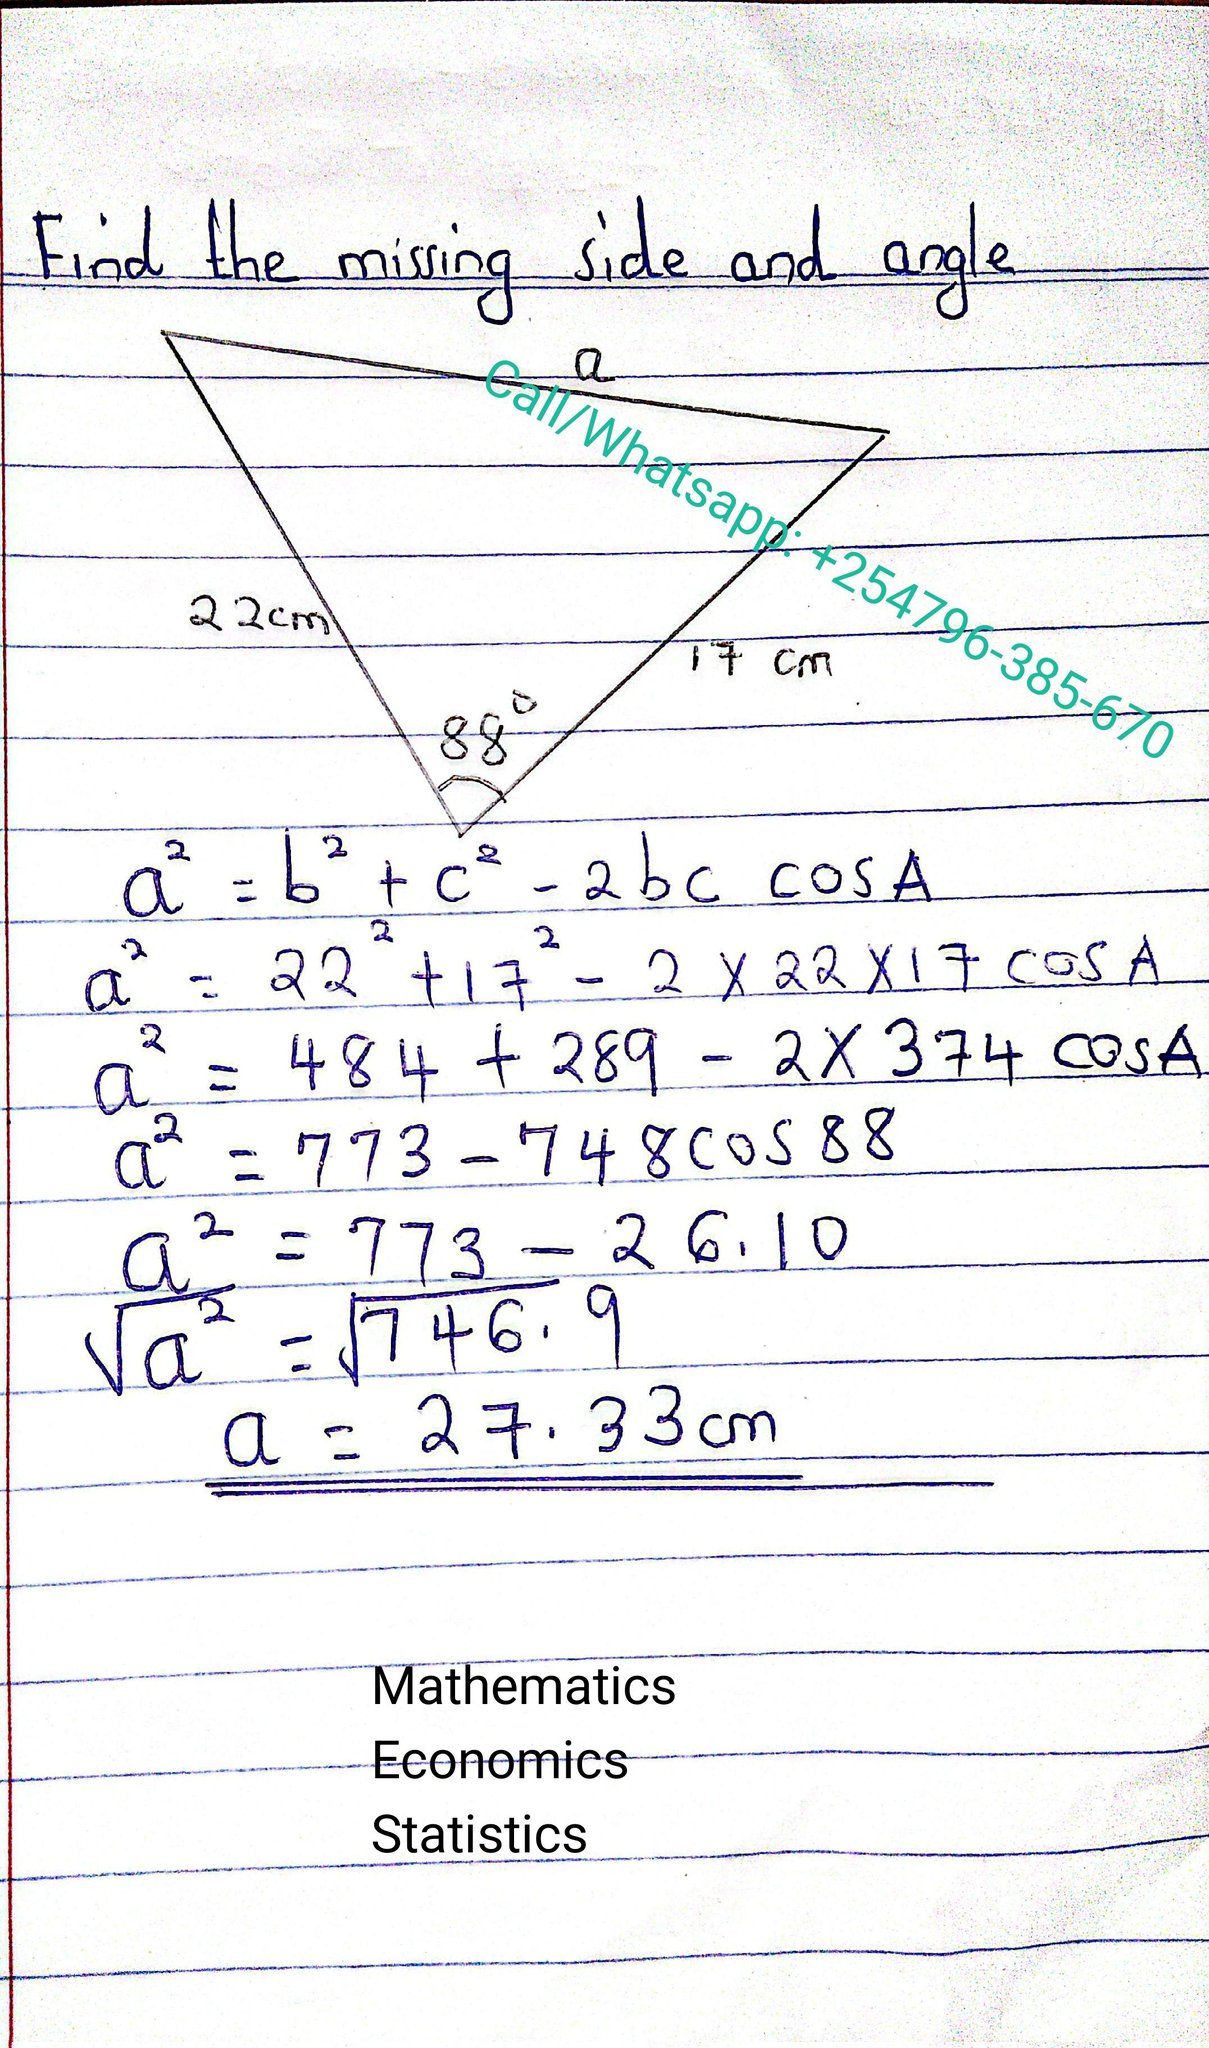 Find the missing side and angle
a
Call/Whatsapp: +254796-385-670
22cm
17 cm
88°
a² = b² + c² - 2bc cosA
a² = 22² + 17² - 2 × 22 × 17 cosA
a² = 484 + 289 - 2 × 374 cosA
a² = 773 - 748 cos 88
a² = 773 - 26.10
√a² = √746.9
a = 27.33cm
Mathematics
Economics
Statistics